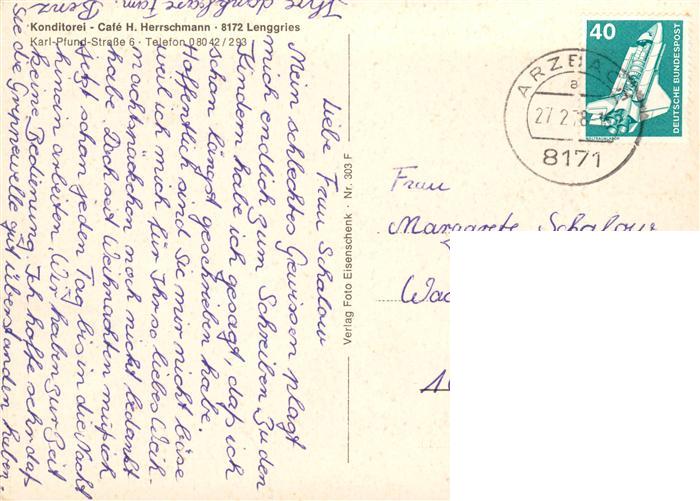 Konditorei - Café H. Herrschmann · 8172 Lenggries
Karl-Pfund-Straße 6 · Telefon 08042 / 293
Liebe Frau Schalow
Mein schlechtes Gewissen plagt
mich endlich zum Schreiben. Zu den
Kindern habe ich gesagt, daß ich
schon längst geschrieben habe.
Hoffentlich sind Sie mir nicht böse
weil ich mich für Ihr so liebes Weih-
nachtspäckchen noch nicht bedankt
habe. Doch seit Weihnachten muß ich
jetzt schon jeden Tag bis in die Nacht
hinein arbeiten. Wir haben zur Zeit
keine Bedienung. Ich hoffe sehr daß
Sie die Grippewelle gut überstanden haben.
Ihre dankbare Fam. Benz
Verlag Foto Eisenschenk · Nr. 303 F
40
DEUTSCHE BUNDESPOST
WELTRAUMLABOR
ARZBACH
a
27.2.78
8171
Frau
Margarete Schalow